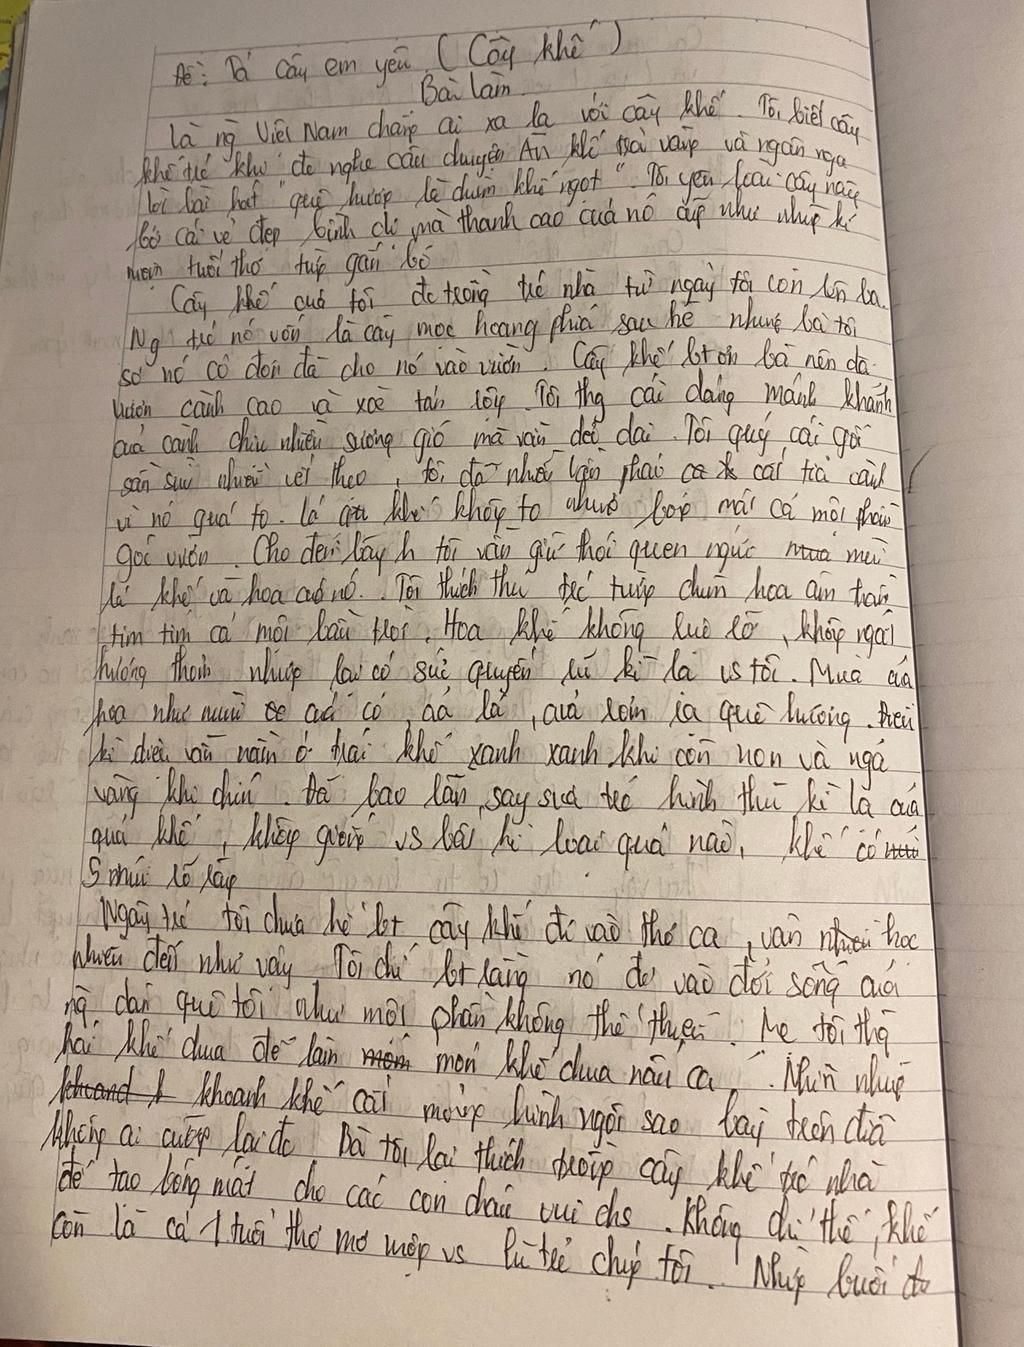 Đề: Tả cây em yêu (Cây khế)
Bài làm
Là ng Việt Nam chẳng ai xa lạ với cây khế. Tôi biết cây
khế từ khi đc nghe câu chuyện Ăn khế trả vàng và ngân nga
lời bài hát "quê hương là chùm khế ngọt". Tôi yêu loài cây này
bởi cái vẻ đẹp bình dị mà thanh cao của nó cũng như những kỉ
niệm tuổi thơ từng gắn bó
Cây khế của tôi đc trồng trc nhà từ ngày tôi còn lên ba.
Ng trc nó vốn là cây mọc hoang phía sau hè nhưng bà tôi
sợ nó cô đơn đã cho nó vào vườn. Cây khế bt ơn bà nên đã
vươn cành cao và xoè tán rộng. Tôi thg cái dáng mảnh khảnh
của cành chịu nhiều sương gió mà vẫn dẻo dai. Tôi quý cái gốc
sần sùi nhiều vết thẹo, tôi đã nhiều lần phải cắt tỉa cành
vì nó quá to. Lá khế không to nhưng bóng mát cả một phần
góc vườn. Cho đến bây h tôi vẫn giữ thói quen ngửi mùi
lá khế và hoa của nó. Tôi thích thú trc từng chùm hoa
tim tím cả một bầu trời. Hoa khế không loè loẹt, không ngát
hương thơm nhưng lại có sức quyến rũ kì lạ vs tôi. Mùi của
hoa như mùi của cỏ, của lá, của rơm rạ quê hương. Điều
kì diệu vẫn nằm ở trái khế xanh xanh khi còn non và ngả
vàng khi chín. Đã bao lần, say sưa trc hình thù kì lạ của
quả khế, không giống vs bất kì loại quả nào, khế có
5 múi
Ngày trc tôi chưa hề bt cây khế đi vào thơ ca, văn học
nhiều đến như vậy. Tôi chỉ bt rằng nó đi vào đời sống của
ng dân quê tôi như một phần không thể thiếu. Mẹ tôi thg
hái khế chua để làm món khế chua nấu cá. Nhìn những
khoanh khế cắt mỏng hình ngôi sao bày trên đĩa
không ai cưỡng lại đc. Bà tôi lại thích trồng cây khế trc nhà
để tạo bóng mát cho các con cháu vui chs. Không chỉ thế, khế
còn là cả 1 tuổi thơ mơ mộng vs lũ trẻ chúng tôi. Những buổi đi